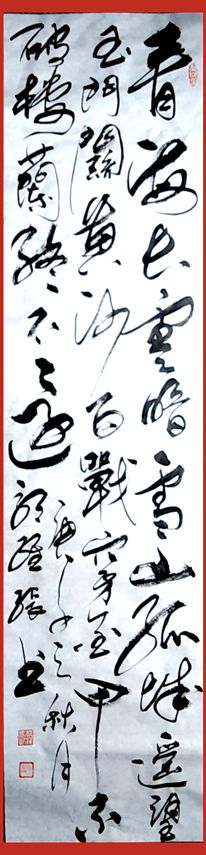 青海長雲暗雪山孤城遥望
玉門關黄沙百戰穿金甲不
破樓蘭終不還
庚子之秋月
書